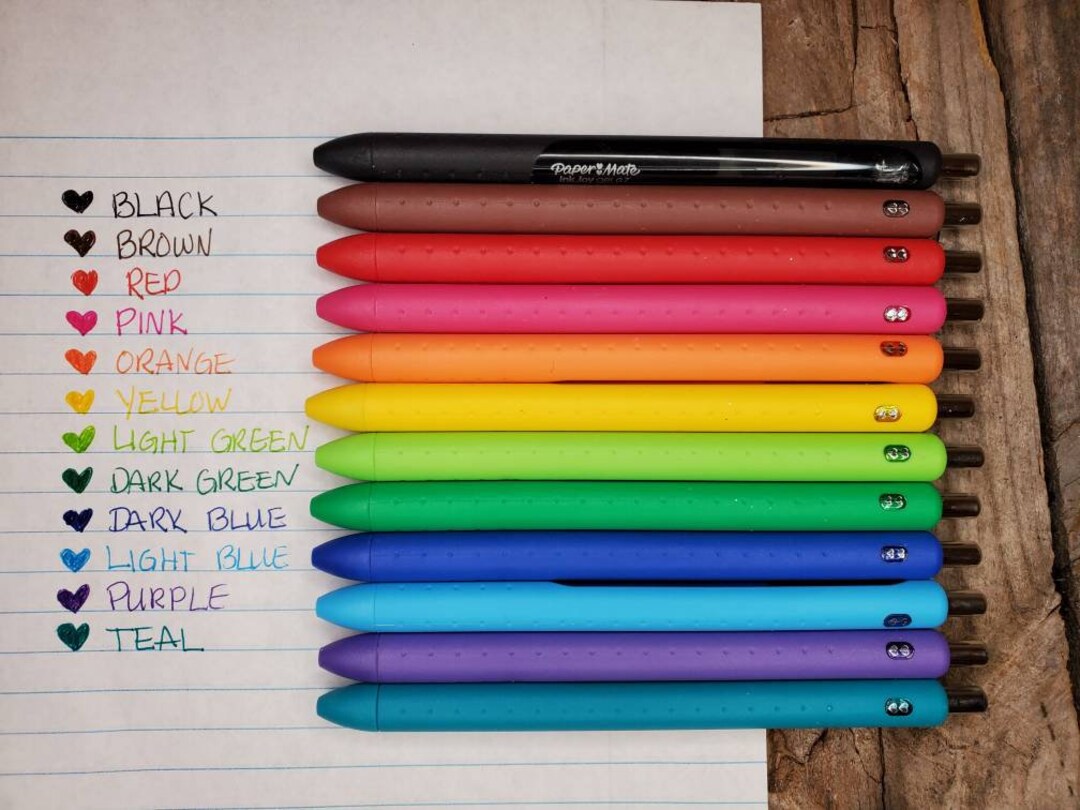 Paper Mate
InkJoy Gel 0.7
BLACK
BROWN
RED
PINK
ORANGE
YELLOW
LIGHT GREEN
DARK GREEN
DARK BLUE
LIGHT BLUE
PURPLE
TEAL